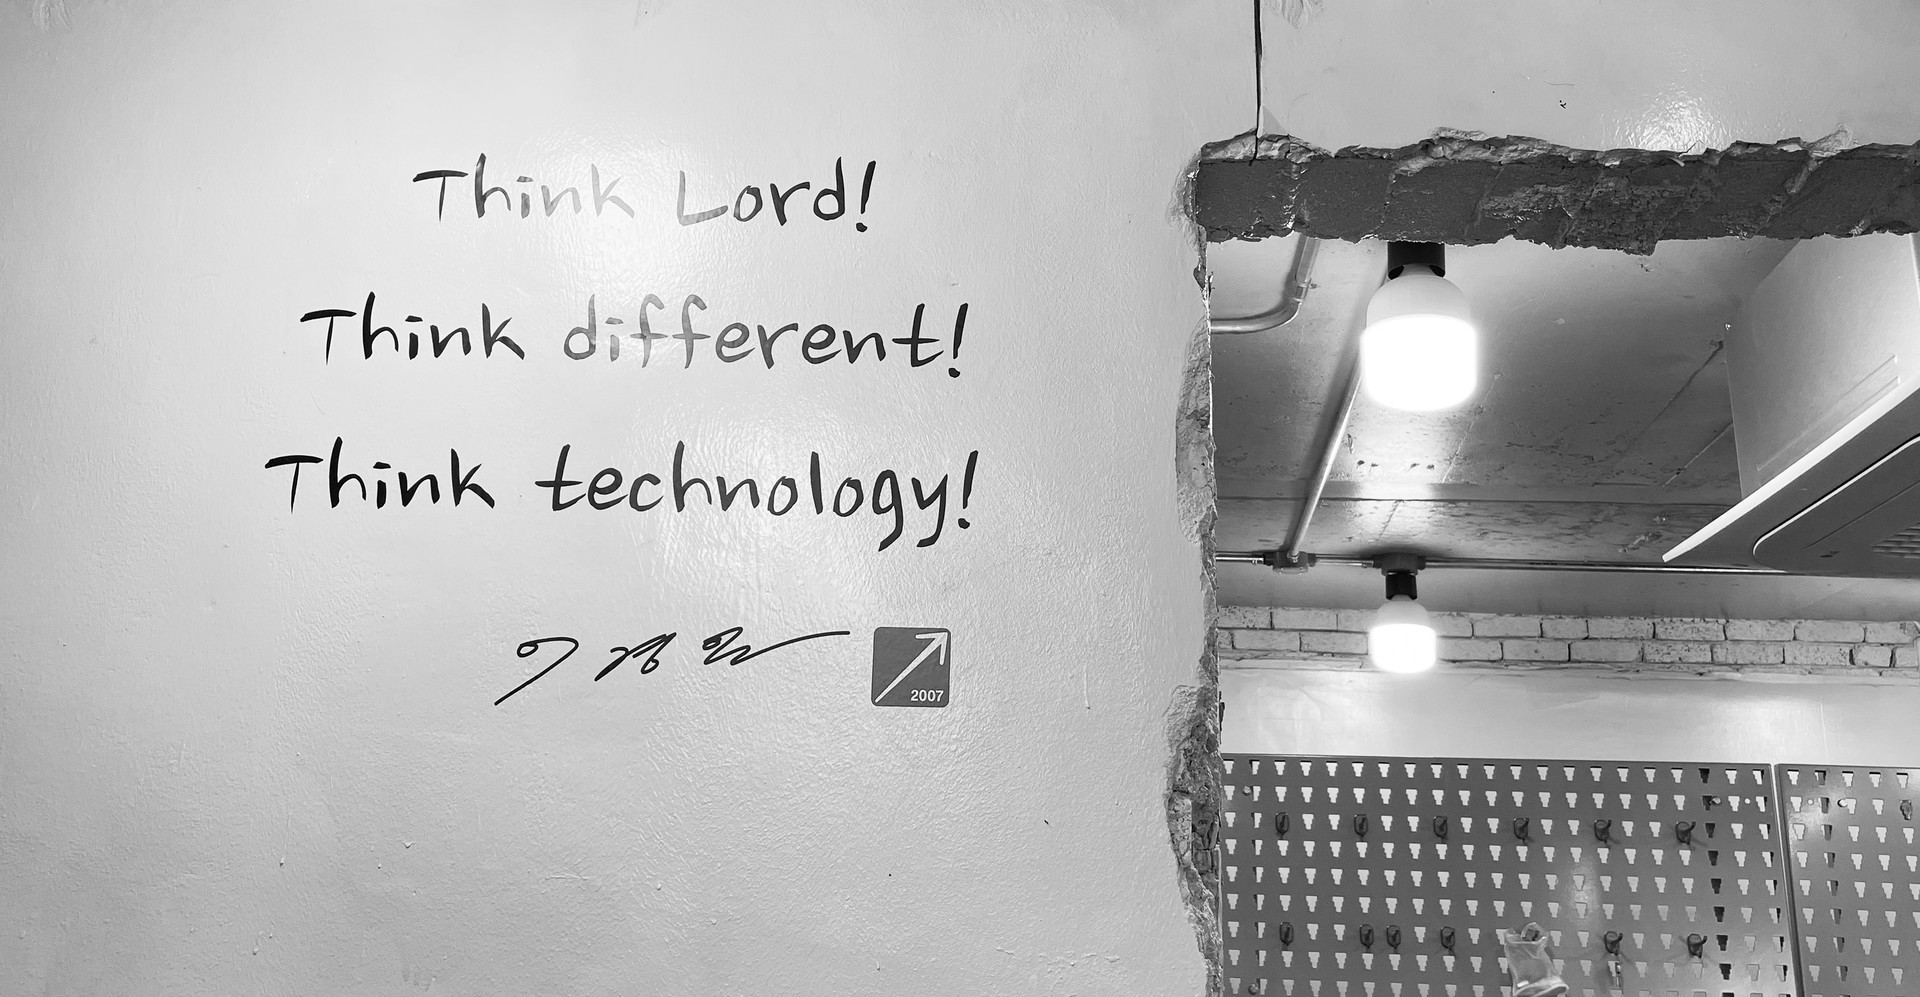 Think Lord!
Think different!
Think technology!
2007